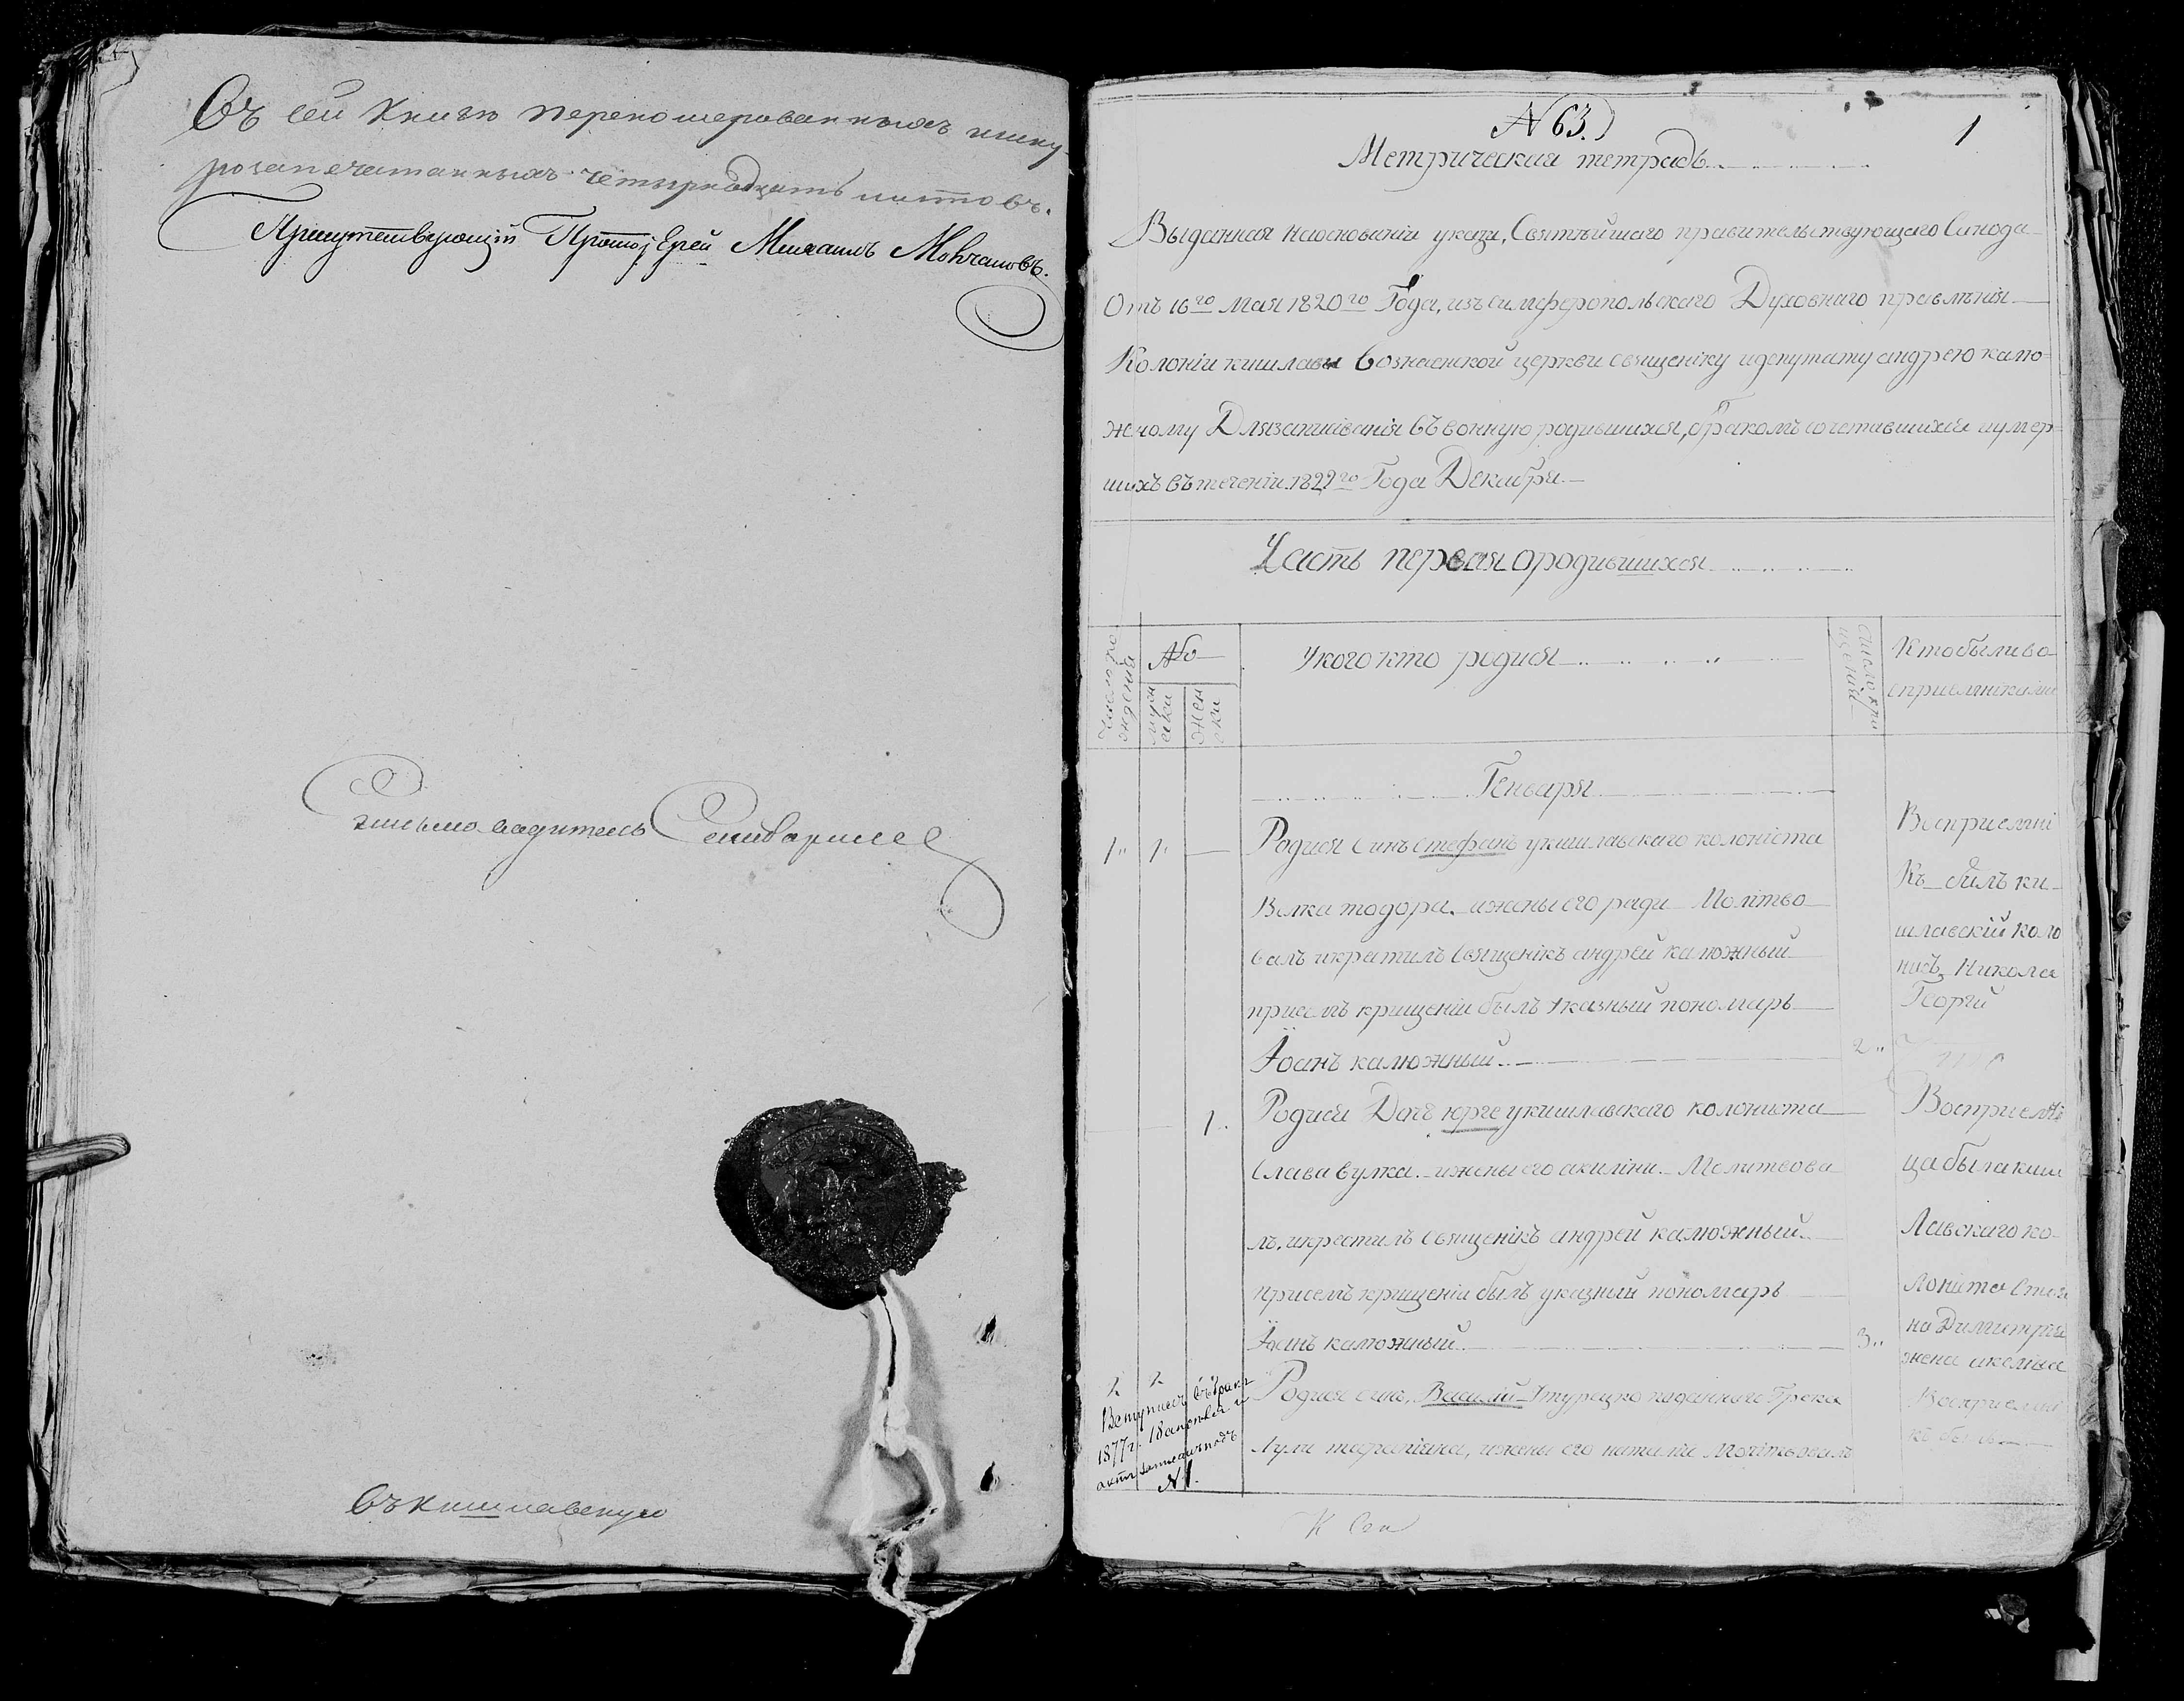 Въ сей книгѣ перенумерованныхъ шну-
розапечатанныхъ четырнадцать листовъ.
Присутствующій Протоіерей Михаилъ
Письмоводитель
Въ кишлавскую
N 63.
1
Метрическая тетрадь
Выданная наоснованіи указа, Святѣйшаго правительствующаго Синода
Отъ 16го Мая 1820го Года, изъ симферопольскаго Духовнаго правлѣнія
Колоніи кишлава вознесенской церкви священіку идепутату андрею калю-
жному Длязаписіванія въ оную родившихся, бракомъ сочетавшихся иумер-
шихъ въ теченіи 1822го Года Декабря
Часть первая ородившихся
Число рождений
No
муж ески
жен ски
Укого кто родися
Число крищения
Кто были во
сприемниками
Генваря
1 1 Родися синъ Стефанъ укишлавскаго колоніста
Велка тодора. ижены его ради Молітво
валъ икрестилъ Священікъ андрей калюжный
приемъ крищеніи былъ Указный пономарь
Іоанъ калюжный
Восприемні
къ билъ ки-
шлавскій коло
нисъ Никола
Георгій
2
1 Родися Дочь юрге укишлавскаго колониста
Слава вулка. ижены его акиліни. Молитвова
лъ. икрестилъ Священікъ андрей калюжный
приемъ крищеніи былъ указный пономарь
Іоанъ калюжный
Восприемні
ца была киш
лавскаго ко-
лоніста Стоя
на Димитрія
жена
3
2 2 Родися синъ. Василій Утурецко поданнаго Грека
ижены его наталіи Молітвовалъ
Восприемні
къ былъ
Вступилъ въ бракъ
1877 г. 18
актъ записанъ подъ
N 1.